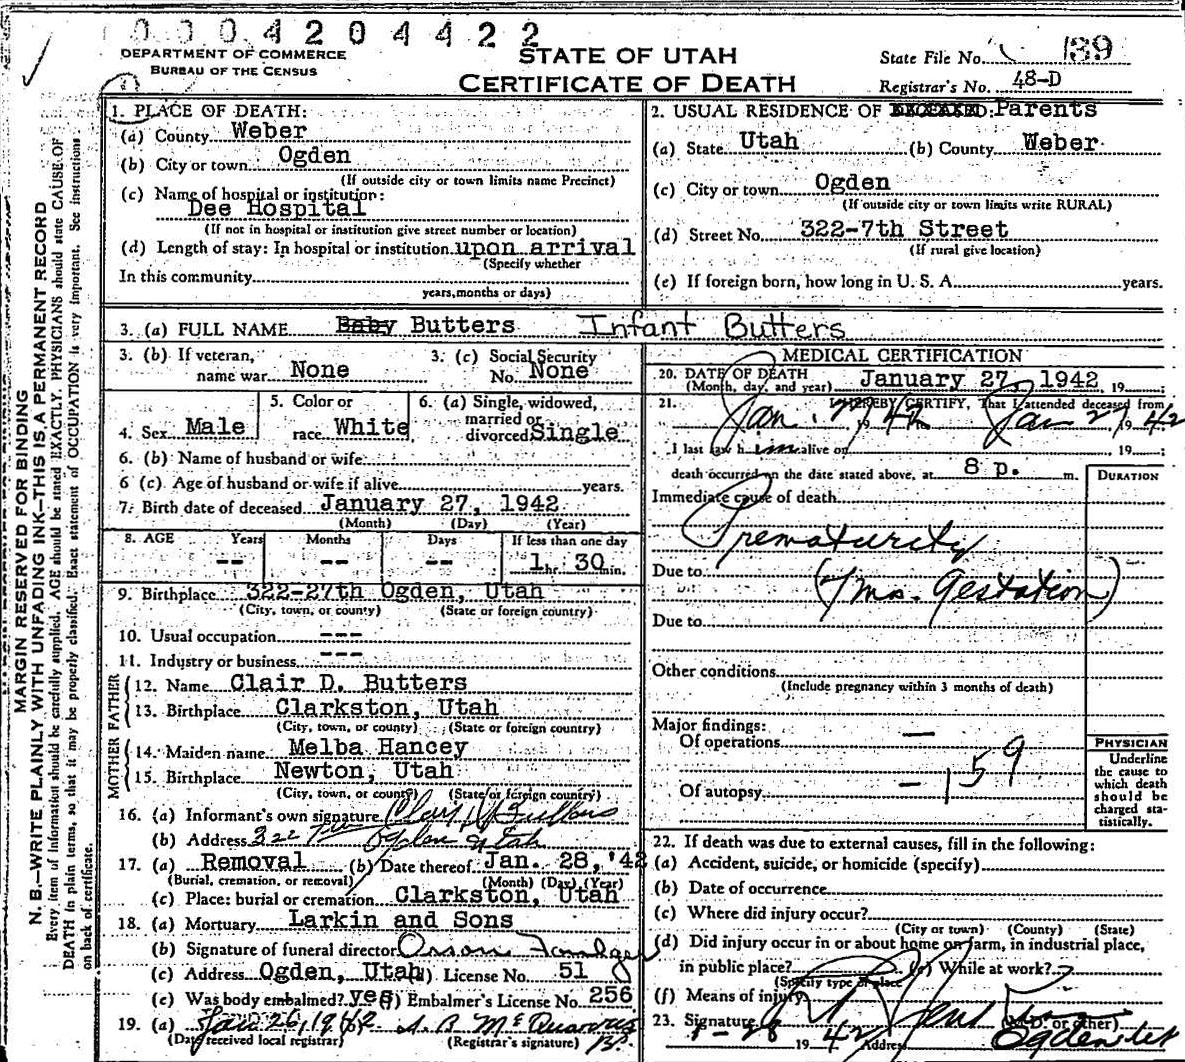 0 0 0 4 2 0 4 4 2 2
DEPARTMENT OF COMMERCE
BUREAU OF THE CENSUS
STATE OF UTAH
CERTIFICATE OF DEATH
State File No. 139
Registrar's No. 48-D
MARGIN RESERVED FOR BINDING
N. B.—WRITE PLAINLY WITH UNFADING INK—THIS IS A PERMANENT RECORD
Every item of information should be carefully supplied. AGE should be stated EXACTLY. PHYSICIANS should state CAUSE OF
DEATH in plain terms, so that it may be properly classified. Exact statement of OCCUPATION is very important. See instructions
on back of certificate.
1. PLACE OF DEATH:
(a) County Weber
(b) City or town Ogden
(If outside city or town limits name Precinct)
(c) Name of hospital or institution:
Dee Hospital
(If not in hospital or institution give street number or location)
(d) Length of stay: In hospital or institution upon arrival
(Specify whether
In this community
years, months or days)
2. USUAL RESIDENCE OF DECEASED: Parents
(a) State Utah (b) County Weber
(c) City or town Ogden
(If outside city or town limits write RURAL)
(d) Street No. 322-7th Street
(If rural give location)
(e) If foreign born, how long in U. S. A. years.
3. (a) FULL NAME Baby Butters Infant Butters
3. (b) If veteran, name war None
3. (c) Social Security No. None
4. Sex Male
5. Color or race White
6. (a) Single, widowed, married or divorced Single
6. (b) Name of husband or wife
6 (c) Age of husband or wife if alive years.
7. Birth date of deceased January 27, 1942
(Month) (Day) (Year)
8. AGE Years Months Days If less than one day
-- -- -- 1 hr. 30 min.
9. Birthplace 322-27th Ogden, Utah
(City, town, or county) (State or foreign country)
10. Usual occupation ---
11. Industry or business ---
FATHER
12. Name Clair D. Butters
13. Birthplace Clarkston, Utah
(City, town, or county) (State or foreign country)
MOTHER
14. Maiden name Melba Hancey
15. Birthplace Newton, Utah
(City, town, or county) (State or foreign country)
16. (a) Informant's own signature
(b) Address 322 Ogden Utah
17. (a) Removal (b) Date thereof Jan. 28, '42
(Burial, cremation, or removal) (Month) (Day) (Year)
(c) Place: burial or cremation Clarkston, Utah
18. (a) Mortuary Larkin and Sons
(b) Signature of funeral director Orson
(c) Address Ogden, Utah (d) License No. 51
(e) Was body embalmed? yes (f) Embalmer's License No. 256
19. (a) 1942
(Date received local registrar) (Registrar's signature)
MEDICAL CERTIFICATION
20. DATE OF DEATH
(Month, day, and year) January 27, 1942, 19 ;
21. I HEREBY CERTIFY, That I attended deceased from
Jan. 27 1942 Jan 27 1942
I last saw him alive on , 19 ;
death occurred on the date stated above, at 8 p. m.
DURATION
Immediate cause of death
Prematurity
Due to (7 mo. Gestation)
Due to
Other conditions
(Include pregnancy within 3 months of death)
Major findings:
Of operations —
Of autopsy — 159
PHYSICIAN
Underline
the cause to
which death
should be
charged sta-
tistically.
22. If death was due to external causes, fill in the following:
(a) Accident, suicide, or homicide (specify)
(b) Date of occurrence
(c) Where did injury occur?
(City or town) (County) (State)
(d) Did injury occur in or about home on farm, in industrial place,
in public place? (e) While at work?
(Specify type of place
(f) Means of injury
23. Signature (M.D. or other)
1-28 1942 Address Ogden Ut